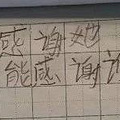 感谢她
能感谢